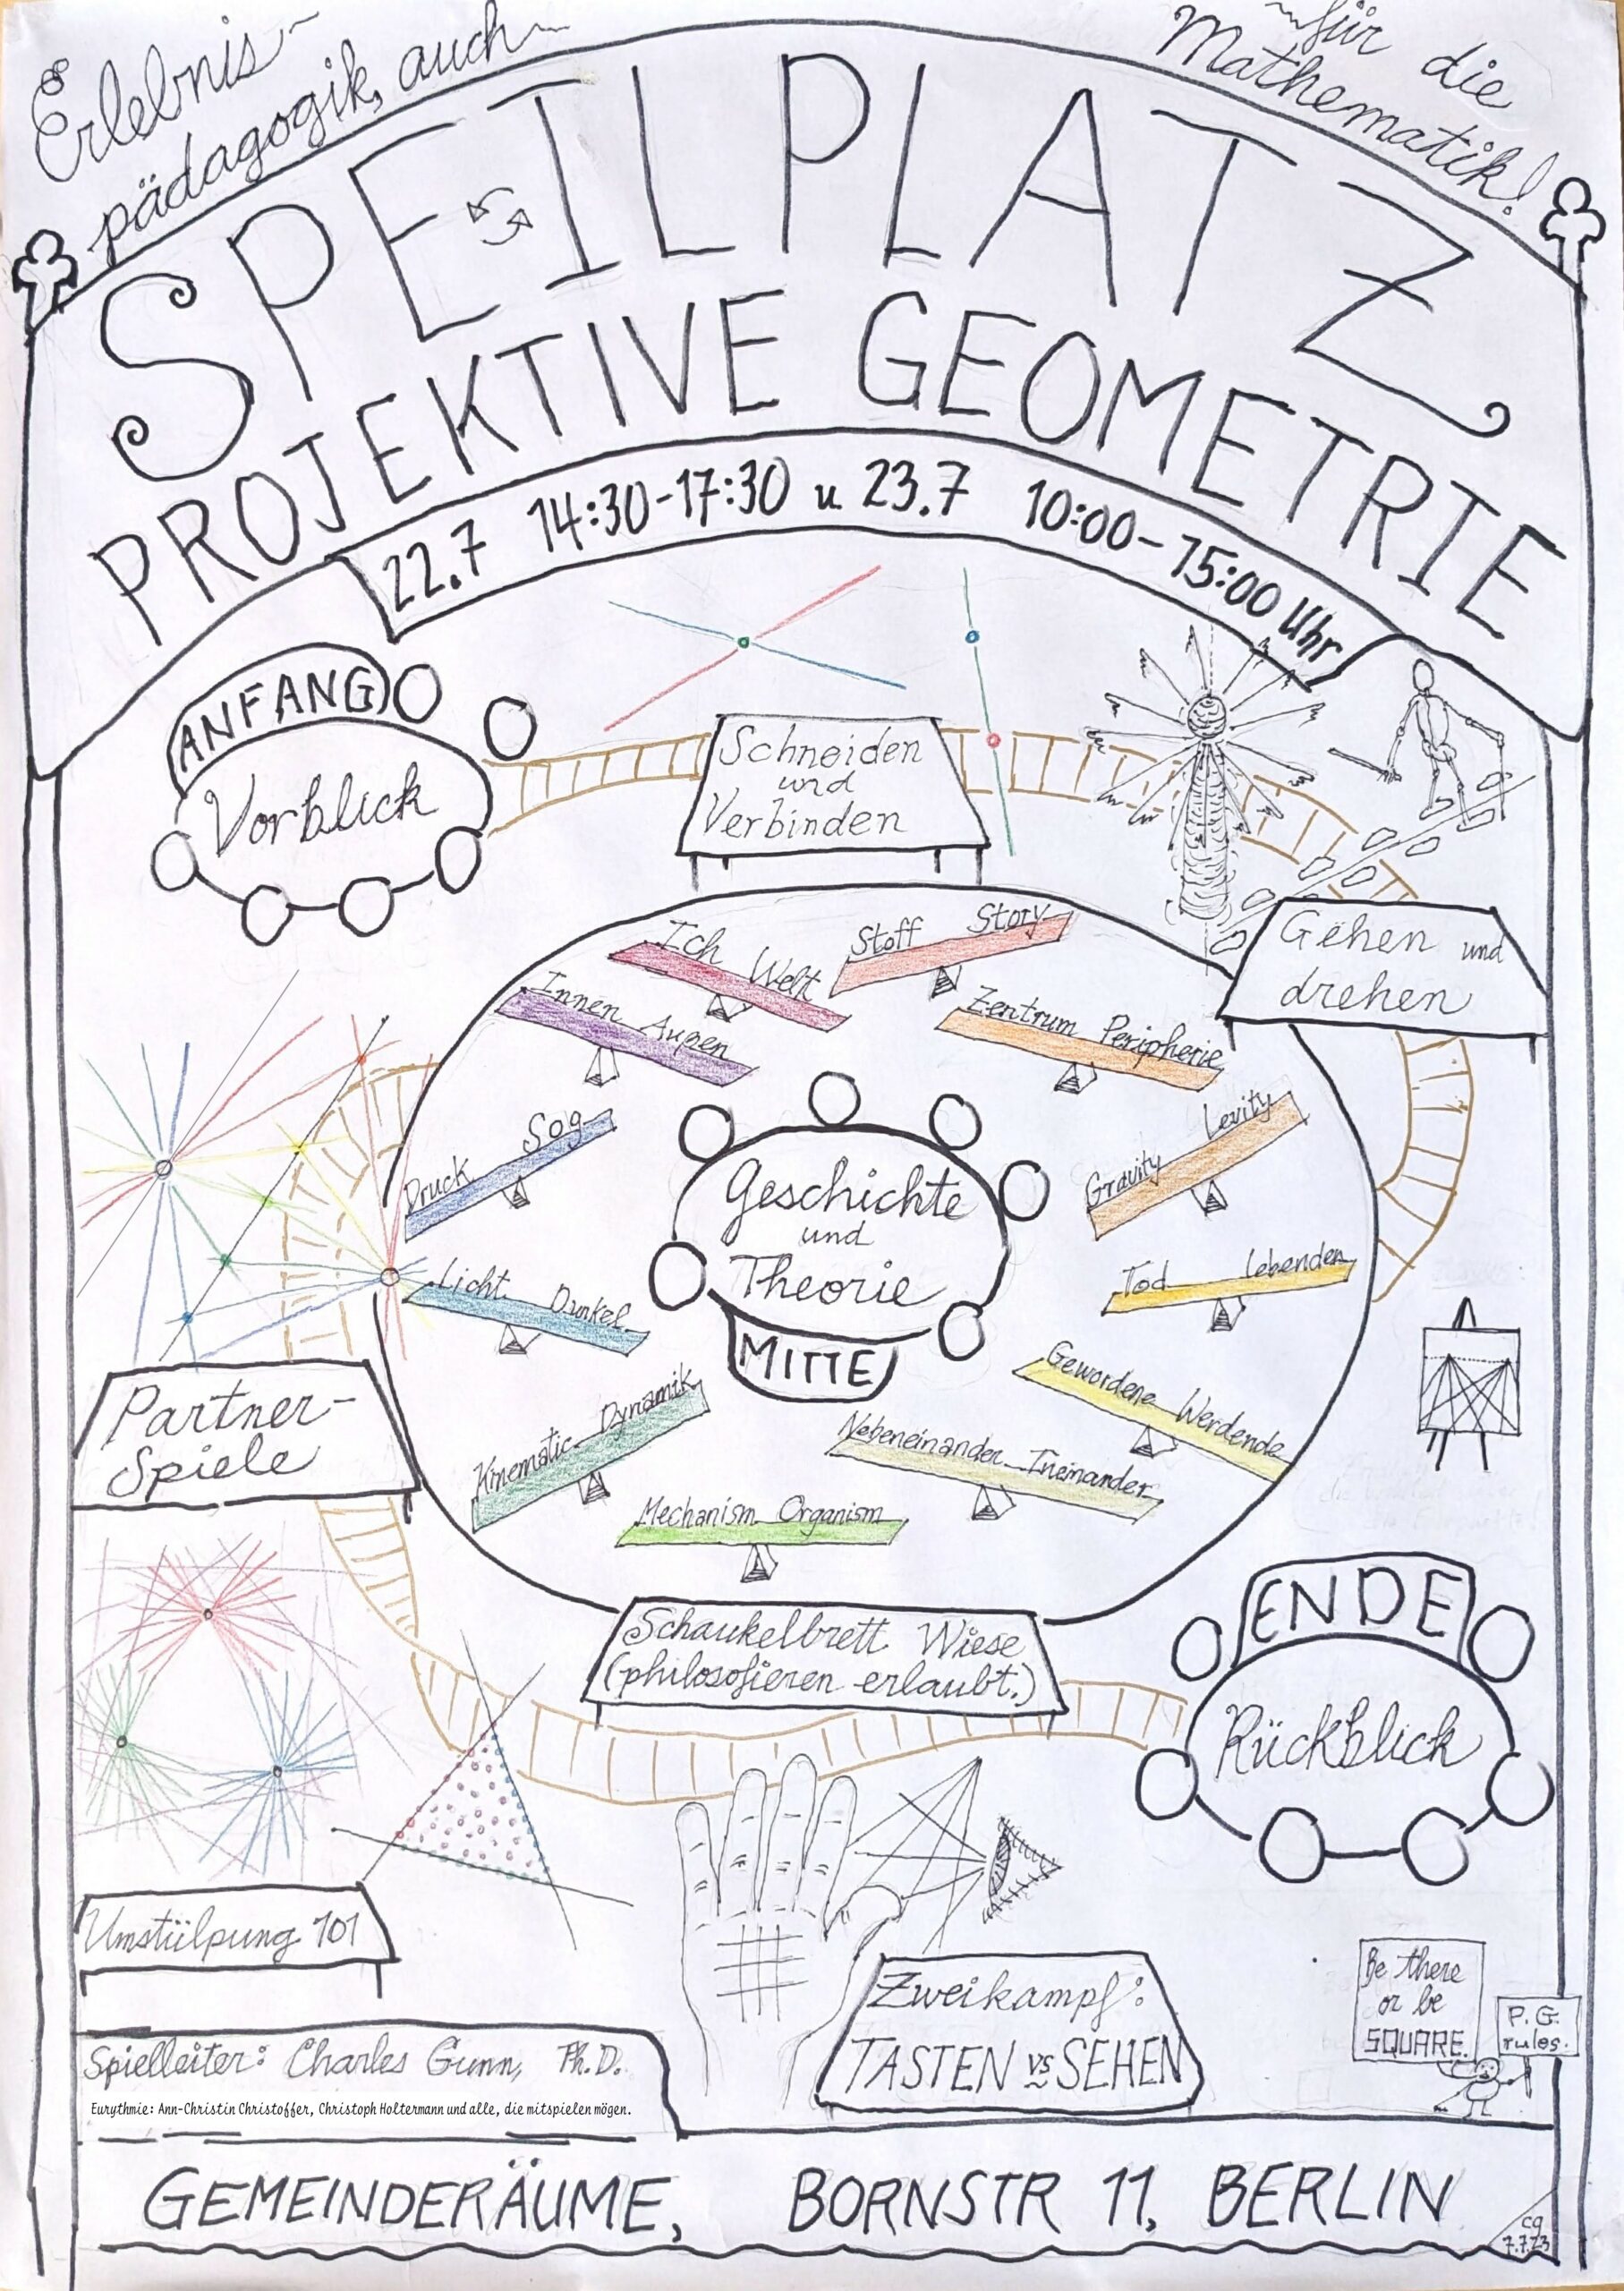 Erlebnis-
pädagogik, auch
für die
Mathematik!
SPEILPLATZ
PROJEKTIVE GEOMETRIE
22.7 14:30-17:30 u 23.7 10:00-15:00 Uhr
ANFANG
Vorblick
Schneiden
und
Verbinden
Gehen und
drehen
Ich Welt
Stoff Story
Innen Außen
Zentrum Peripherie
Druck Sog
Gravity Levity
Geschichte
und
Theorie
MITTE
Licht Dunkel
Tod Lebenden
Gewordene Werdende
Kinematic Dynamik
Nebeneinander Ineinander
Mechanism Organism
Partner-
Spiele
Schaukelbrett Wiese
(philosofieren erlaubt.)
ENDE
Rückblick
Umstülpung 101
Zweikampf:
TASTEN vs SEHEN
Be there
or be
SQUARE.
P.G.
rules.
Spielleiter: Charles Gunn, Ph.D.
Eurythmie: Ann-Christin Christoffer, Christoph Holtermann und alle, die mitspielen mögen.
GEMEINDERÄUME, BORNSTR 11, BERLIN
cg
7.7.23